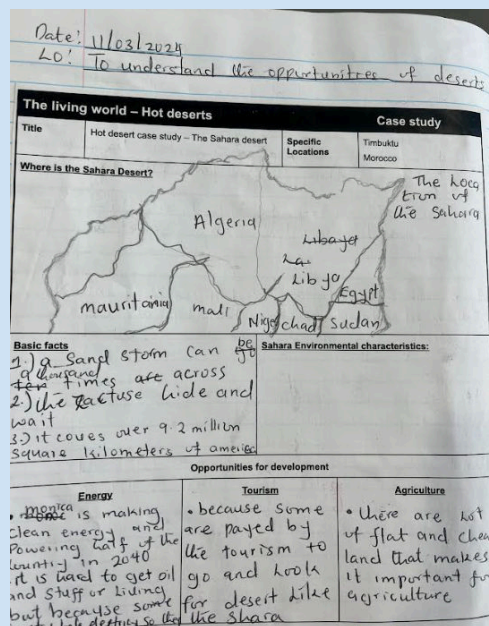 Date: 11/03/2024
LO: To understand the oppurtunitres of deserts
The living world – Hot deserts Case study
Title Hot desert case study – The Sahara desert Specific Locations Timbuktu Morocco
Where is the Sahara Desert?
The Loca
tion of
the Sahara
Algeria
Libya
Egypt
mauritania
mali
Niger
chad
Sudan
Basic facts
1.) a Sand storm can be go
a thousand times across
2.) the hide and
wait
3.) it coves over 9.2 million
square kilometers of america
Sahara Environmental characteristics:
Opportunities for development
Energy
• monica is making
clean energy and
Powering half of the
country in 2040
it is hard to get oil
and stuff or living
but because some
Tourism
• because some
are payed by
the tourism to
go and look
for desert like
the shara
Agriculture
• there are lot
of flat and chea
land that makes
it important fo
agriculture